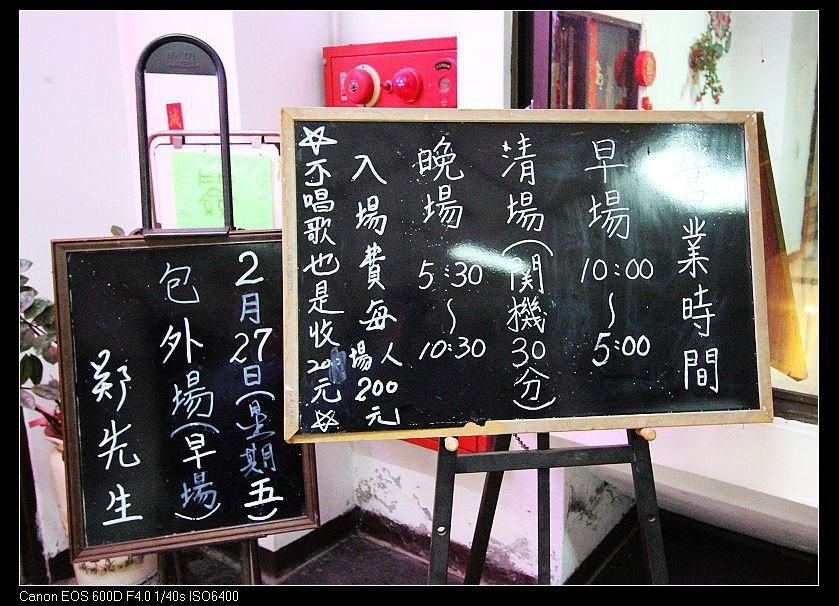 營業時間
早場 10:00~5:00
清場(関機30分)
晚場 5:30~10:30
入場費每場人200元
☆不唱歌也是收200元☆
2月27日(星期五)
包外場(早場)
郑先生
Canon EOS 600D F4.0 1/40s ISO6400